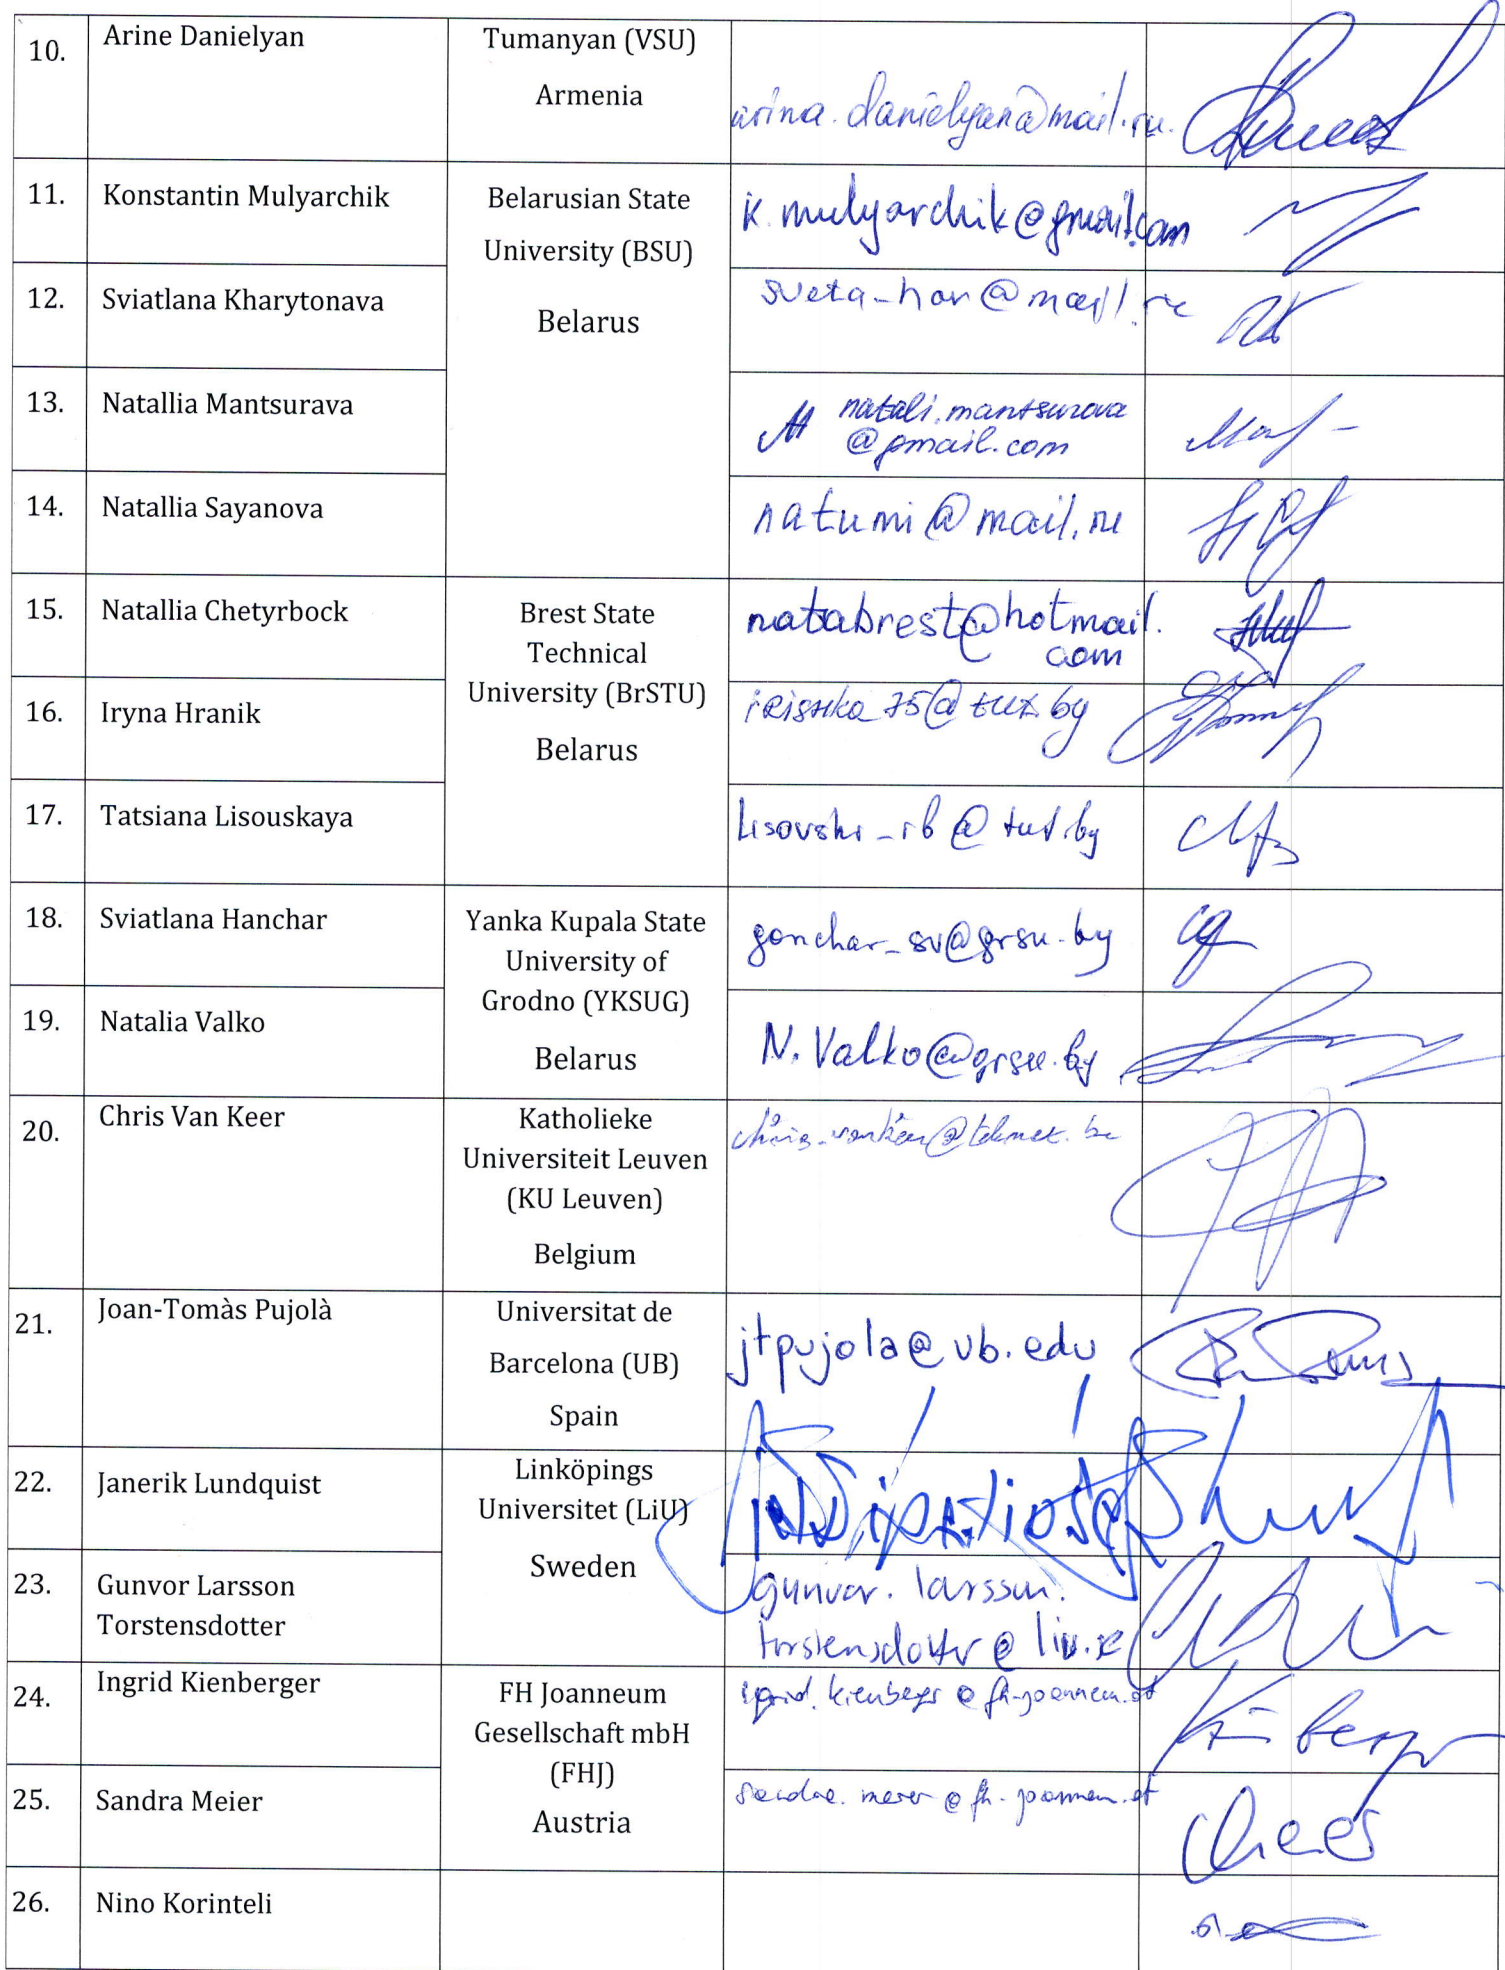 10.
Arine Danielyan
Tumanyan (VSU)
Armenia
arina.danielyan@mail.ru.
11.
Konstantin Mulyarchik
Belarusian State
University (BSU)
Belarus
k.mulyarchik@gmail.com
12.
Sviatlana Kharytonava
sveta-har@mail.ru
13.
Natallia Mantsurava
natali.mantsurova
@gmail.com
14.
Natallia Sayanova
natumi@mail.ru
15.
Natallia Chetyrbock
Brest State
Technical
University (BrSTU)
Belarus
natabrest@hotmail.
com
16.
Iryna Hranik
irishka75@tut.by
17.
Tatsiana Lisouskaya
Lisovski-rb@tut.by
18.
Sviatlana Hanchar
Yanka Kupala State
University of
Grodno (YKSUG)
Belarus
gonchar_sv@grsu.by
19.
Natalia Valko
N.Valko@grsu.by
20.
Chris Van Keer
Katholieke
Universiteit Leuven
(KU Leuven)
Belgium
21.
Joan-Tomàs Pujolà
Universitat de
Barcelona (UB)
Spain
jtpujola@ub.edu
22.
Janerik Lundquist
Linköpings
Universitet (LiU)
Sweden
23.
Gunvor Larsson
Torstensdotter
gunvor.larsson.
torstensdotter@liu.se
24.
Ingrid Kienberger
FH Joanneum
Gesellschaft mbH
(FHJ)
Austria
ingrid.kienberger@fh-joanneum.at
25.
Sandra Meier
sandra.meier@fh-joanneum.at
26.
Nino Korinteli